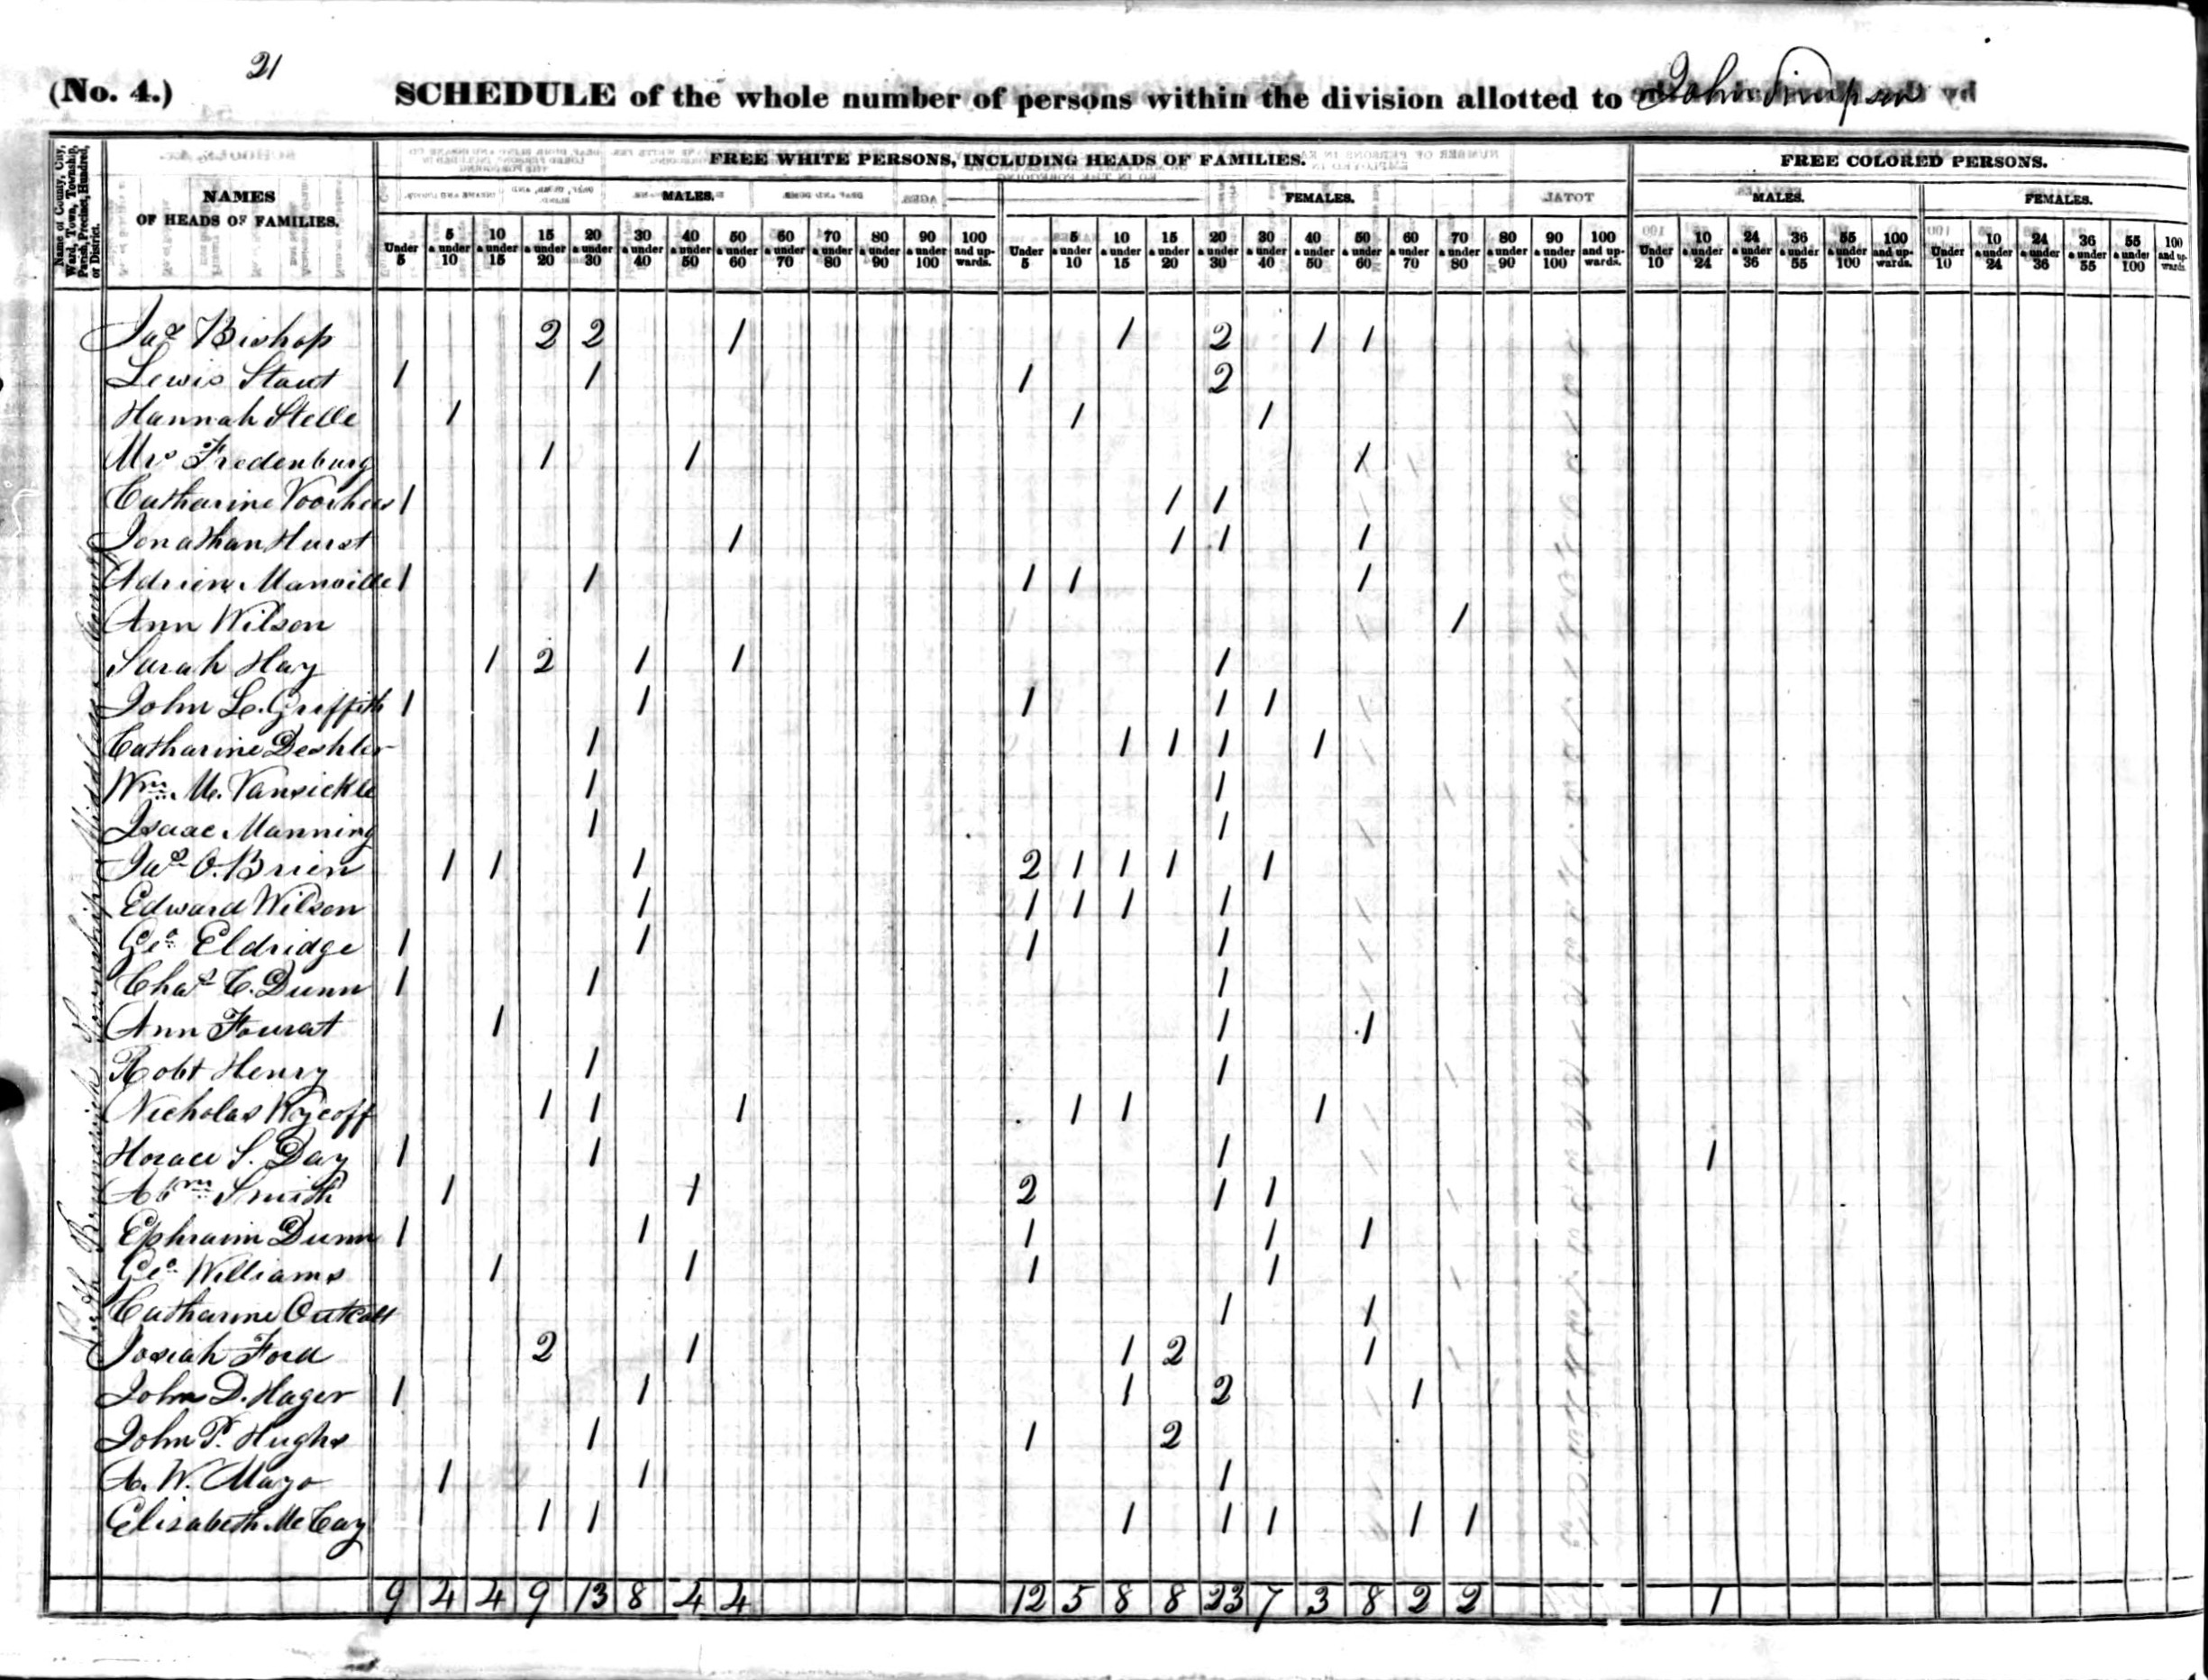 21
(No. 4.) SCHEDULE of the whole number of persons within the division allotted to John Simpson
Name of County, City, Ward, Town, Township, Parish, Precinct, Hundred, or District.
NAMES
OF HEADS OF FAMILIES.
FREE WHITE PERSONS, INCLUDING HEADS OF FAMILIES.
FREE COLORED PERSONS.
MALES. FEMALES. MALES. FEMALES.
Under 5 5 & under 10 10 & under 15 15 & under 20 20 & under 30 30 & under 40 40 & under 50 50 & under 60 60 & under 70 70 & under 80 80 & under 90 90 & under 100 100 and upwards.
Under 5 5 & under 10 10 & under 15 15 & under 20 20 & under 30 30 & under 40 40 & under 50 50 & under 60 60 & under 70 70 & under 80 80 & under 90 90 & under 100 100 and upwards.
Under 10 10 & under 24 24 & under 36 36 & under 55 55 & under 100 100 and upwards.
Under 10 10 & under 24 24 & under 36 36 & under 55 55 & under 100 100 and upwards.
North Brunswick Township Middlesex County
Jas Bishop 2 2 1 1 2 1 1
Lewis Stout 1 1 1 2
Hannah Stelle 1 1 1
Mrs Fredenburg 1 1 1
Catharine Voorhees 1 1 1
Jonathan Hurst 1 1 1 1
Adrien Manville 1 1 1 1 1
Ann Wilson 1
Sarah Hay 1 2 1 1 1
John L. Griffith 1 1 1 1 1
Catharine Deshler 1 1 1 1 1
Wm. M. Vansickle 1 1
Isaac Manning 1 1
Jas O. Brien 1 1 1 2 1 1 1 1
Edward Wilson 1 1 1 1 1
Geo Eldridge 1 1 1 1
Chas C. Dunn 1 1 1
Ann Fourat 1 1 1
Robt Henry 1 1
Nicholas Wycoff 1 1 1 1 1 1
Horace S. Day 1 1 1 1
Abm Smith 1 1 2 1 1
Ephraim Dunn 1 1 1 1 1
Geo Williams 1 1 1 1
Catharine Outcalt 1 1
Josiah Ford 2 1 1 2 1
John D. Hager 1 1 1 2 1
John P. Hughs 1 1 2
A. W. Mayo 1 1 1
Elisabeth McCay 1 1 1 1 1 1 1
9 4 4 9 13 8 4 4 12 5 8 8 23 7 3 8 2 2 1